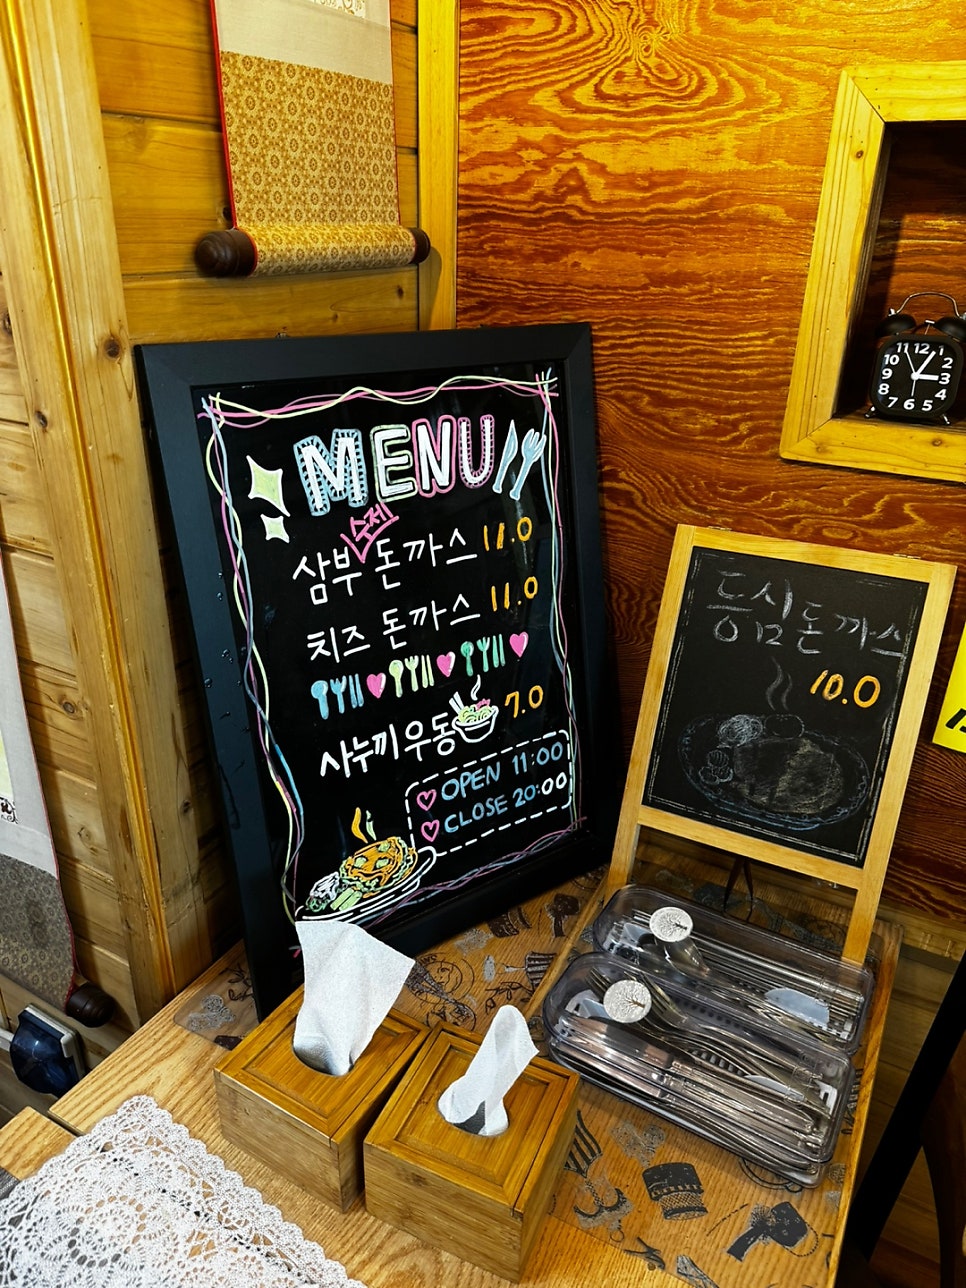 MENU
수제
삼부 돈까스 11.0
치즈 돈까스 11.0
사누끼우동 7.0
OPEN 11:00
CLOSE 20:00
등심돈까스
10.0
11 12 1
10 2
9 3
8 4
7 6 5